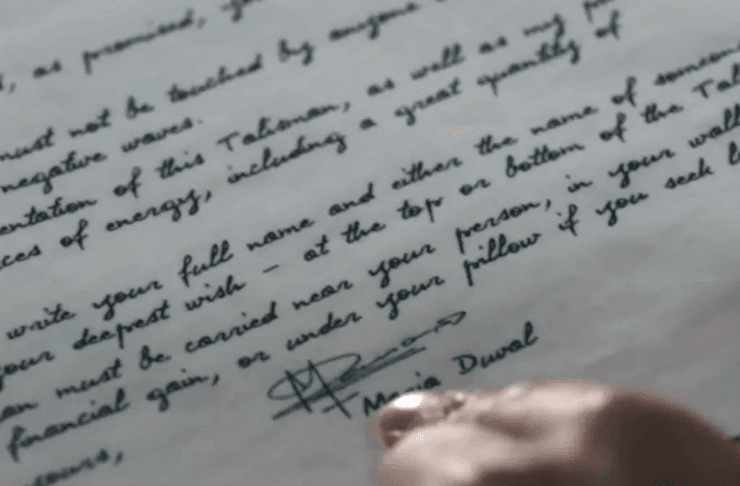 , as promised,
must not be touched by anyone
negative waves.
entation of this Talisman, as well as my
ces of energy, including a great quantity of
write your full name and either the name of someon
our deepest wish – at the top or bottom of the Tal
an must be carried near your person, in your wall
financial gain, or under your pillow if you seek l
ours,
Maria Duval